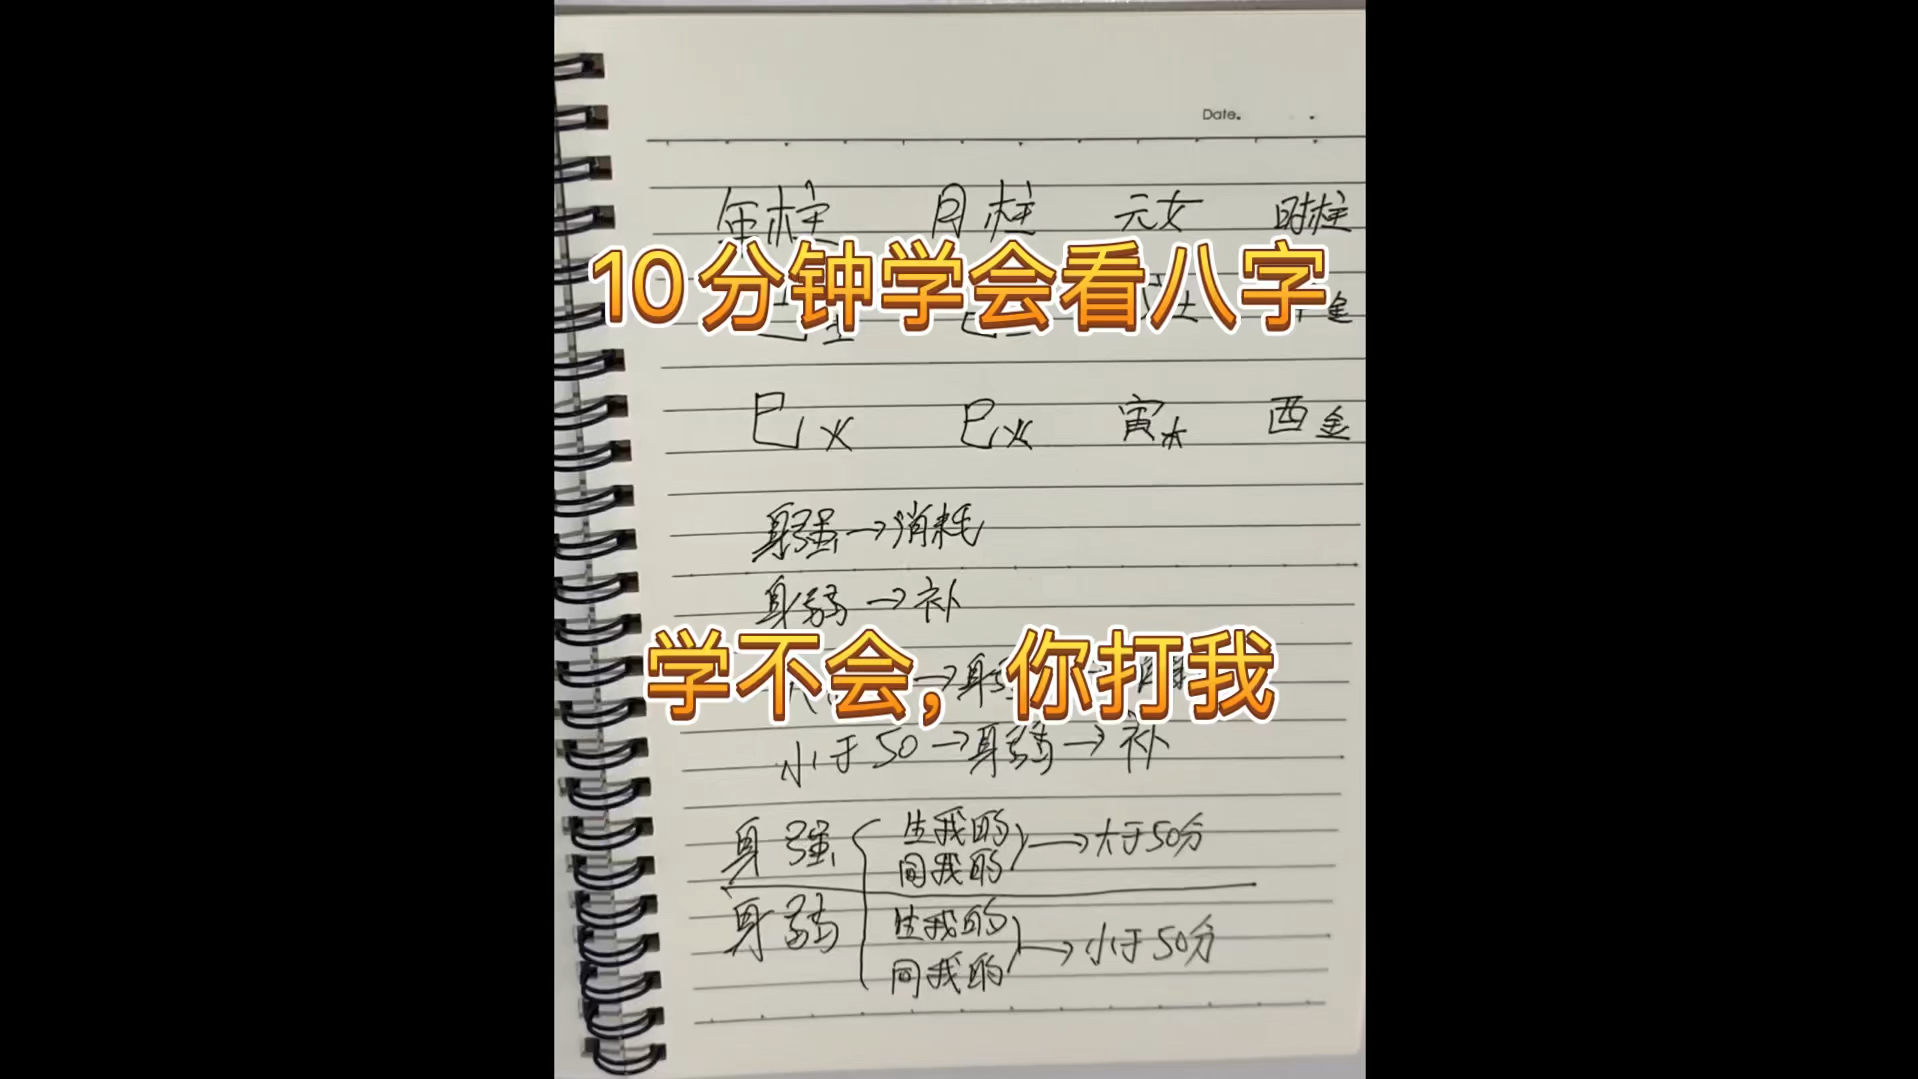 Date.
年柱 月柱 元女 时柱
10分钟学会看八字
土 金
巳火 巳火 寅木 酉金
身强→消耗
身弱→补
学不会，你打我
小于50→身弱→补
身强 生我的 同我的 →大于50分
身弱 生我的 同我的 →小于50分